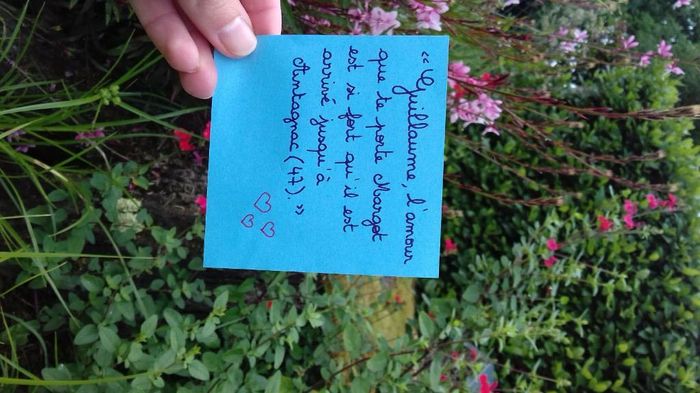 « Guillaume, l'amour
que te porte Margot
est si fort qu'il est
arrivé jusqu'à
Antagnac (47). »